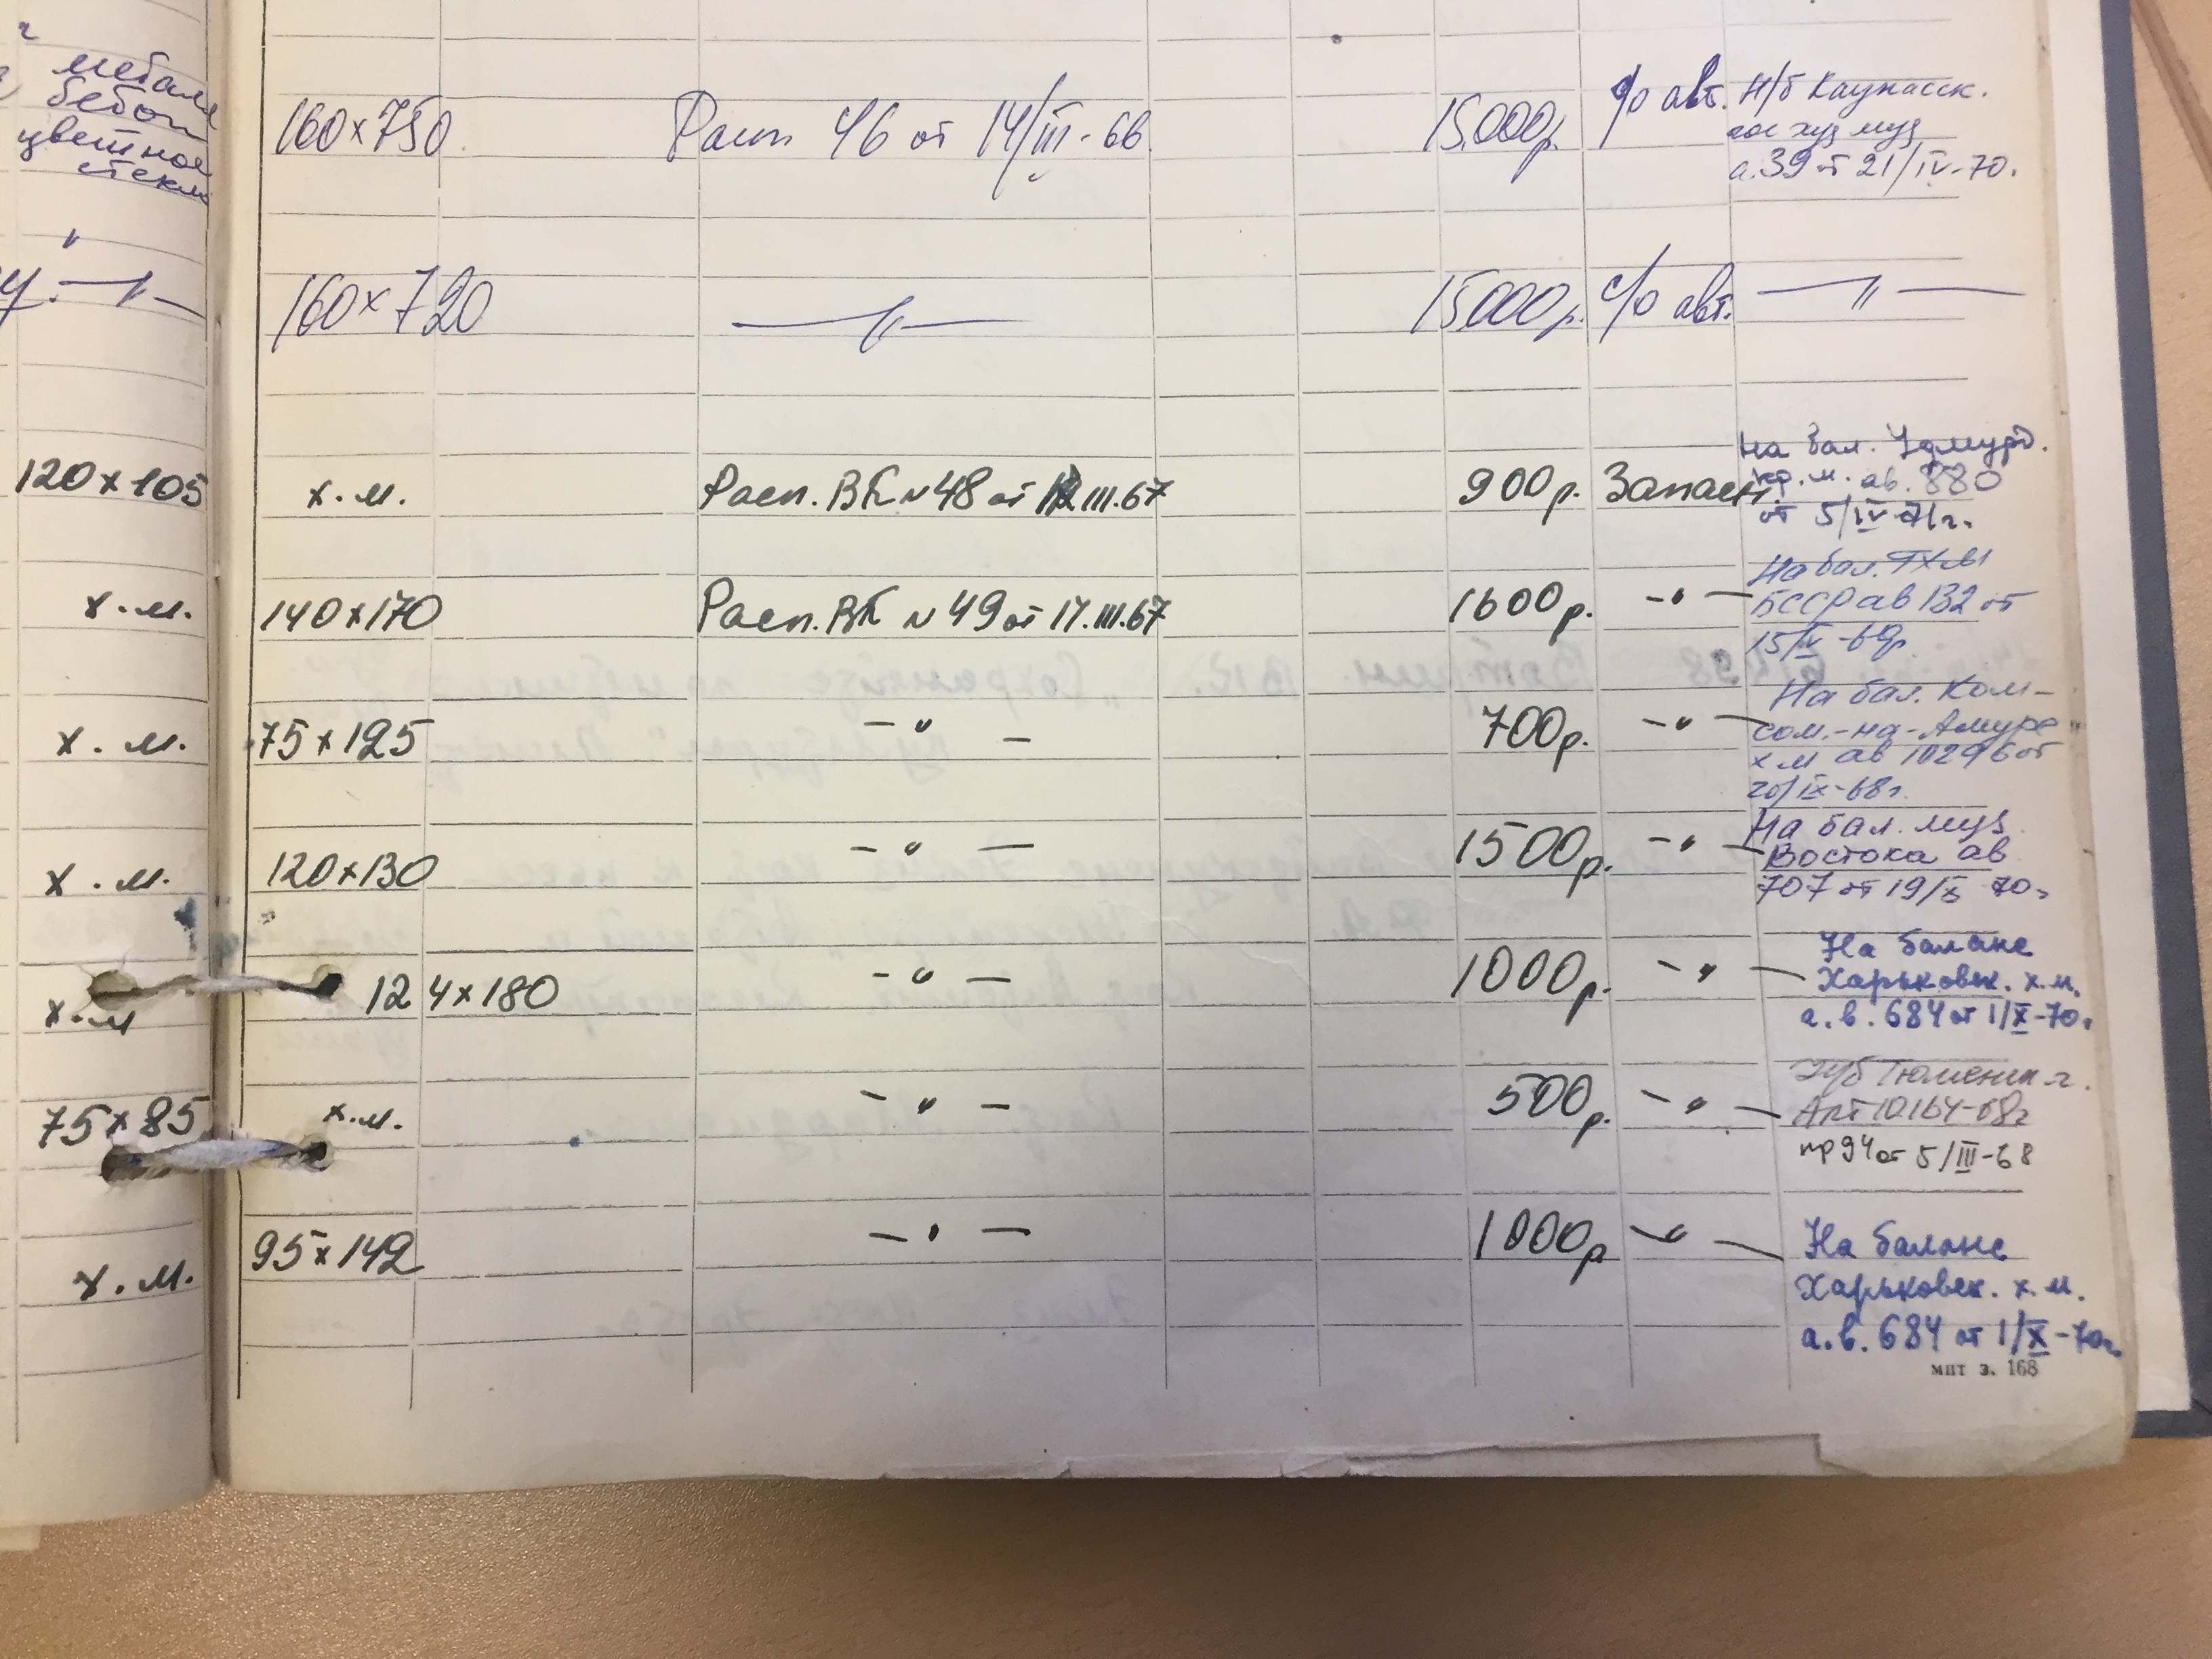 металл
бетон
цветное
стекло
160х750 Расп 46 от 14/III-66 15.000р. с/о авт. Н/б Каунасск.
гос худ муз
а.39 от 21/IV-70.
"
—"— 160х720 —"— 15000р. с/о авт. —"—
120х105 х.м. Расп. ВК N 48 от III.67 900р. Запасн. На бал. Удмурд.
кр.м. ав. 880
от 5/IV-71г.
х.м. 140х170 Расп. ВК N 49 от 17.III.67 1600р. -"- На бал. ГХМ
БССР ав 132 от
15/IV-69г.
х.м. 75х125 -"- 700р. -"- На бал. Ком-
сом.-на-Амуре
х м ав 10296 от
20/IX-68г.
х.м. 120х130 -"- 1500р. -"- На бал. муз
Востока ав
707 от 19/X 70г
х.м 124х180 -"- 1000р. -"- На балансе
Харьковск. х.м.
а.в. 684 от 1/X-70г
75х85 х.м. -"- 500р. -"- Тюменск г.
Акт 10164-68г
пр 94 от 5/III-68
х.м. 95х142 -"- 1000р -"- На балансе
Харьковск. х.м.
а.в. 684 от 1/X-70г
мпт з. 168